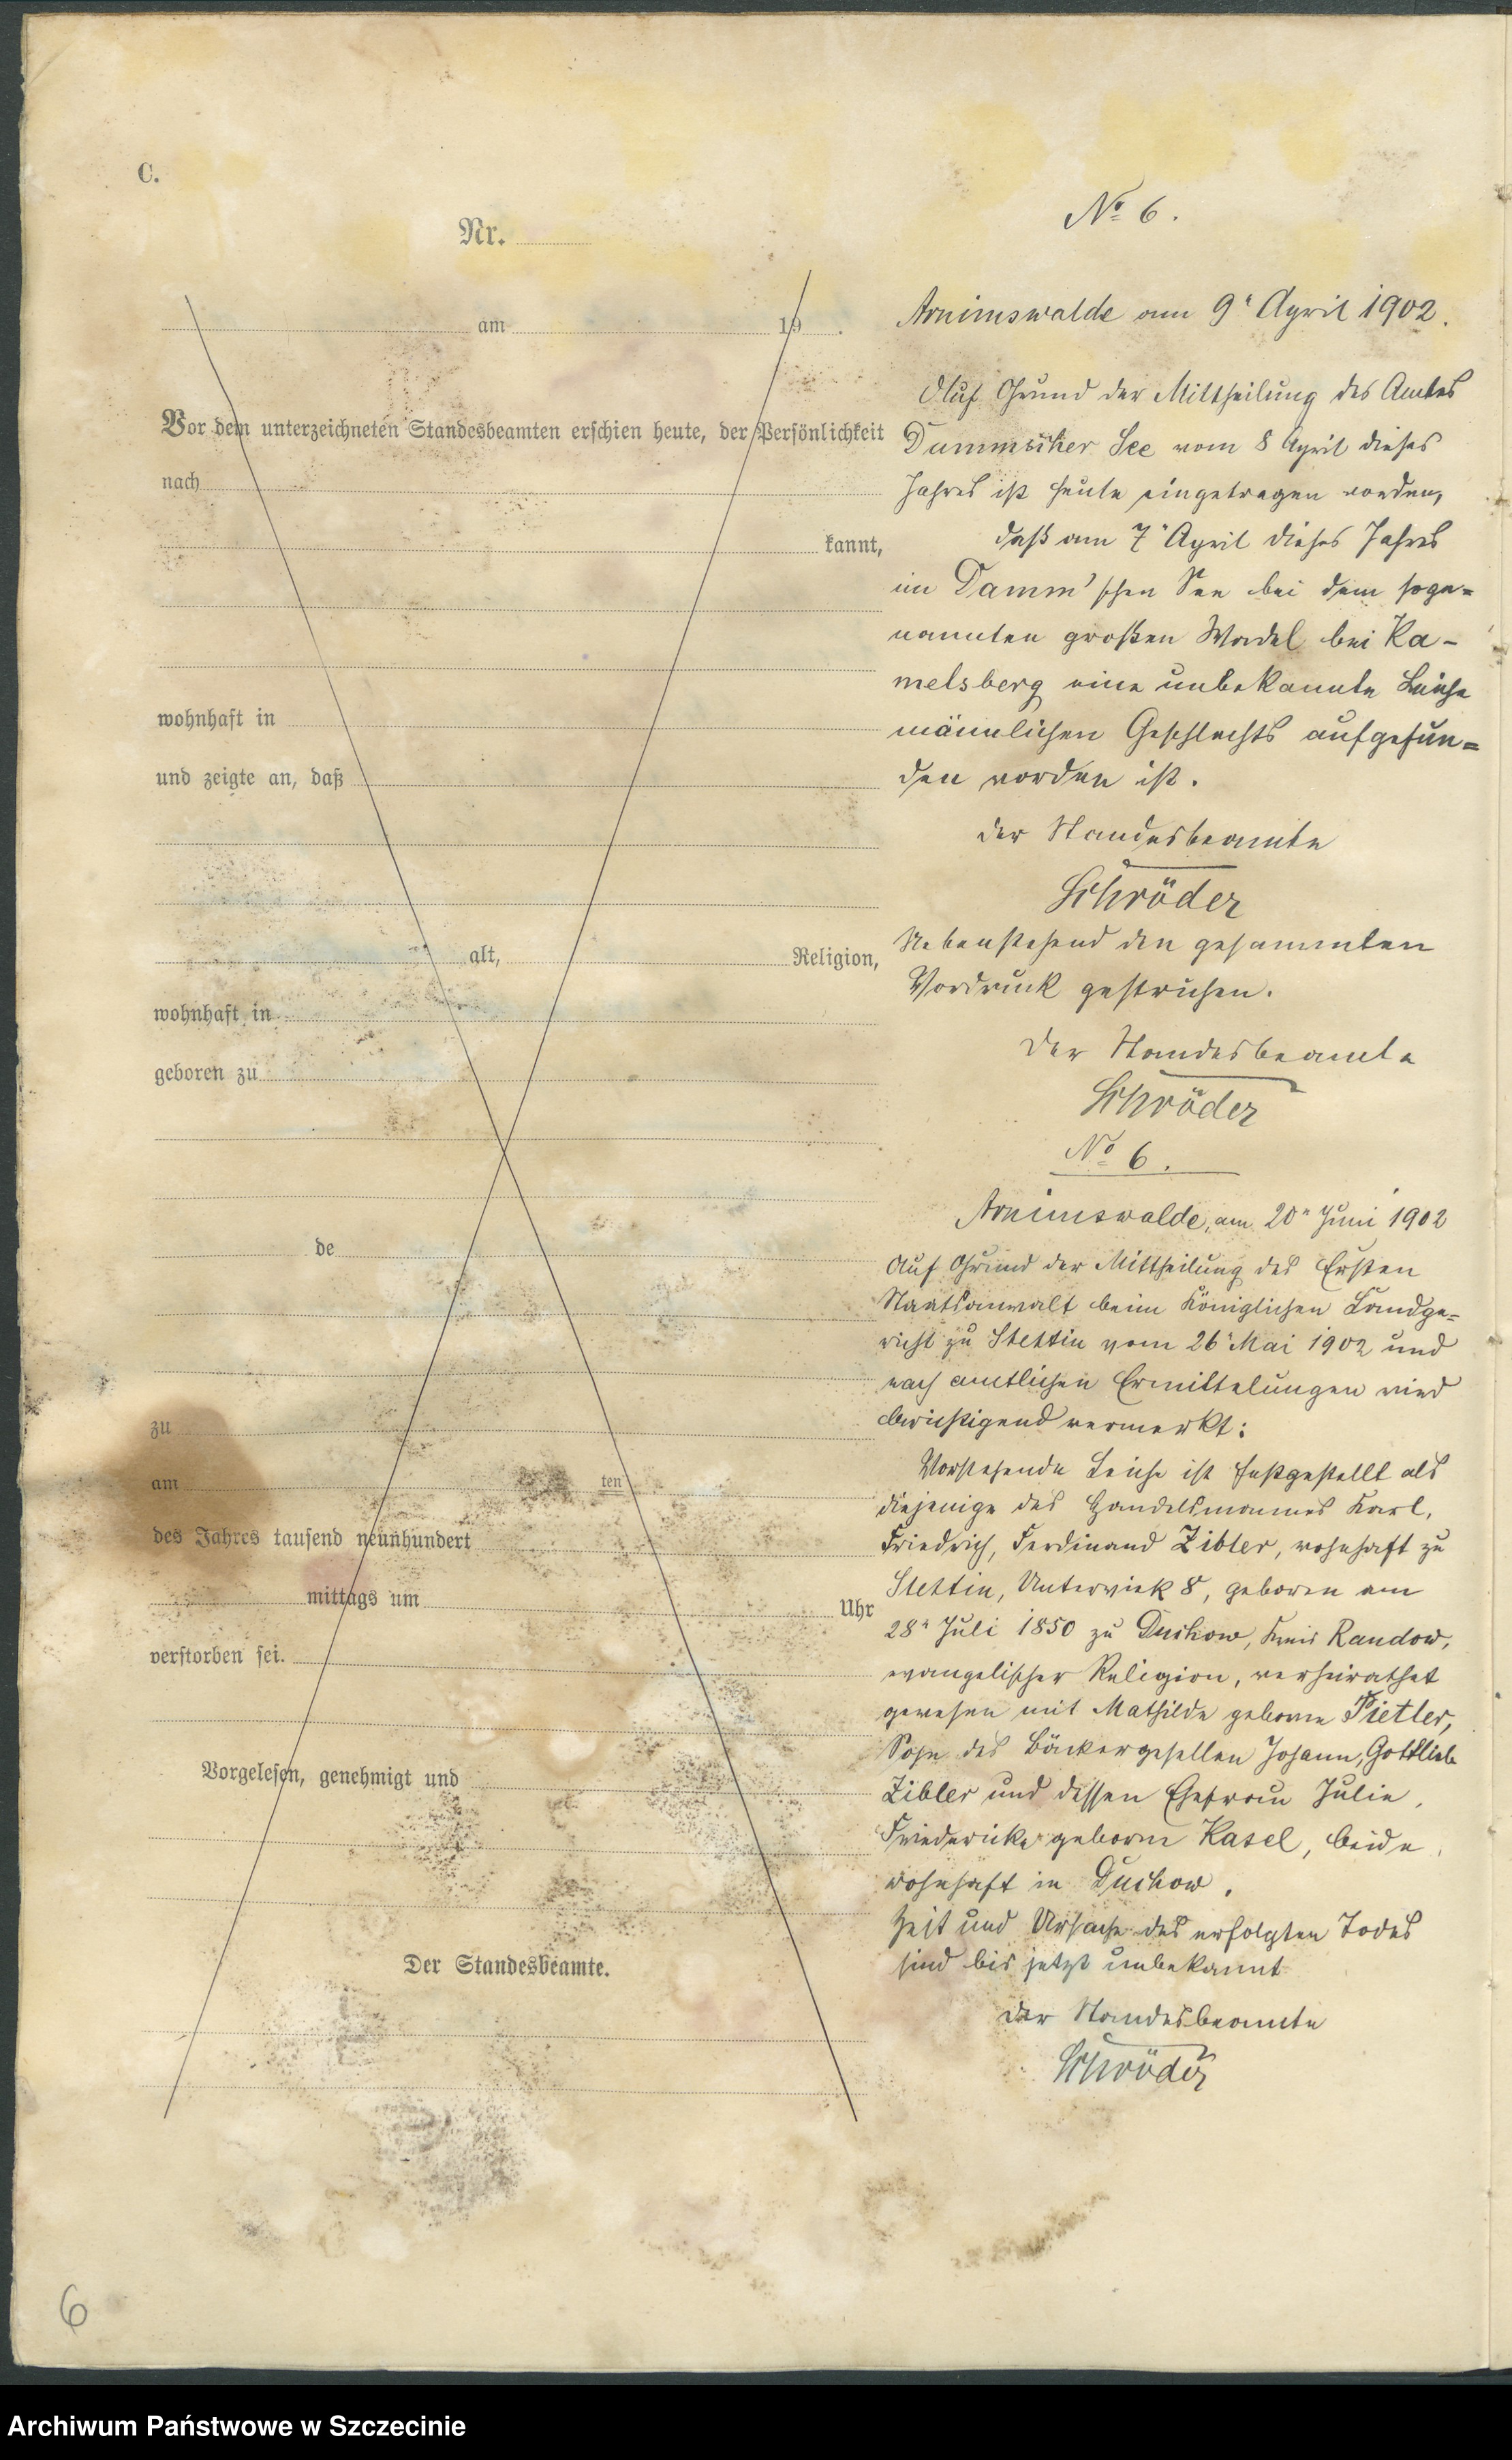 C.
Nr.
am 19 .
Vor dem unterzeichneten Standesbeamten erschien heute, der Persönlichkeit
nach
kannt,
wohnhaft in
und zeigte an, daß
alt, Religion,
wohnhaft in
geboren zu
de
zu
am ten
des Jahres tausend neunhundert
mittags um Uhr
verstorben sei.
Vorgelesen, genehmigt und
Der Standesbeamte.
No 6.
Arnimswalde am 9n April 1902.
Auf Grund der Mittheilung des Amtes
Dammscher See vom 8 April dieses
Jahres ist heute eingetragen worden,
daß am 7n April dieses Jahres
im Damm'schen See bei dem soge=
nannten großen Wadel bei Ka-
melsberg eine unbekannte Leiche
männlichen Geschlechts aufgefun=
den worden ist.
der Standesbeamte
Schröder
Nebenstehend den gesammten
Vordruck gestrichen.
Der Standesbeamte
Schröder
No 6.
Arnimswalde, am 20n Juni 1902
Auf Grund der Mittheilung des Ersten
Staatsanwalt beim Königlichen Landge=
richt zu Stettin vom 26n Mai 1902 und
nach amtlichen Ermittelungen wird
berichtigend vermerkt:
Vorstehende Leiche ist festgestellt als
diejenige des Handelsmannes Karl,
Friedrich, Ferdinand Zibler, wohnhaft zu
Stettin, Unterwiek 8, geboren am
28n Juli 1850 zu Duchow, Kreis Randow,
evangelischer Religion, verheirathet
gewesen mit Mathilde geborne Tietler,
Sohn des Bäckergesellen Johann, Gottlieb
Zibler und dessen Ehefrau Julie,
Friedericke geborne Kasel, beide
wohnhaft in Duchow.
Zeit und Ursache des erfolgten Todes
sind bis jetzt unbekannt
der Standesbeamte
Schröder
6
Archiwum Państwowe w Szczecinie